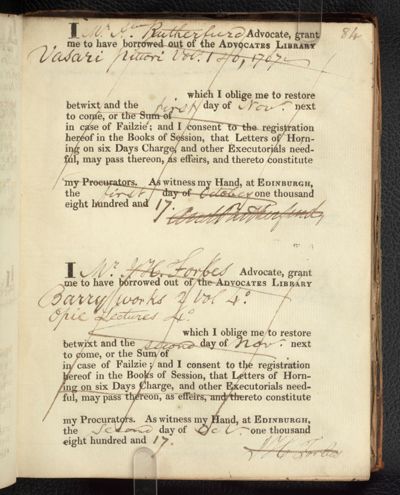 84
I Mr. Andw Rutherfurd Advocate, grant
me to have borrowed out of the ADVOCATES LIBRARY
Vasari pittori Vol. 1
which I oblige me to restore
betwixt and the first day of Nov. next
to come, or the Sum of
in case of Failzie; and I consent to the registration
hereof in the Books of Session, that Letters of Horn-
ing on six Days Charge, and other Executorials need-
ful, may pass thereon, as effeirs, and thereto constitute
my Procurators. As witness my Hand, at EDINBURGH,
the first day of October one thousand
eight hundred and 17.
And Rutherfurd
I Mr. J H. Forbes Advocate, grant
me to have borrowed out of the ADVOCATES LIBRARY
Barry works 2 Vol 4o.
Opie Lectures 4o.
which I oblige me to restore
betwixt and the second day of Nov. next
to come, or the Sum of
in case of Failzie; and I consent to the registration
hereof in the Books of Session, that Letters of Horn-
ing on six Days Charge, and other Executorials need-
ful, may pass thereon, as effeirs, and thereto constitute
my Procurators. As witness my Hand, at EDINBURGH,
the Second day of Oct. one thousand
eight hundred and 17.
J H Forbes